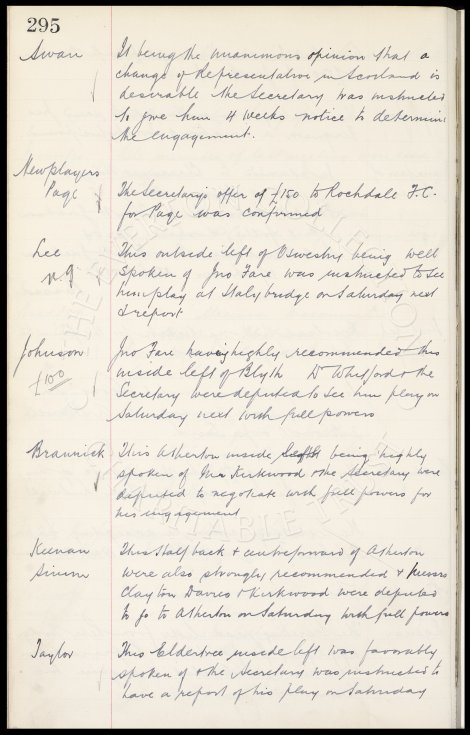 295
Swan
It being the unanimous opinion that a
change of Representative in Scotland is
desirable the Secretary was instructed
to give him 4 weeks notice to determine
the engagement.
New players
Page
The Secretary's offer of £150 to Rochdale F.C.
for Page was confirmed
Lee
n.g
This outside left of Oswestry being well
spoken of Jno Fare was instructed to see
him play at Stalybridge on Saturday next
& report
Johnson
£100
Jno Fare having highly recommended this
inside left of Blyth Dr Whitford & the
Secretary were deputed to see him play on
Saturday next with full powers
Brannick
This Atherton inside being highly
spoken of Mr Kirkwood & the Secretary were
deputed to negotiate with full powers for
his engagement
Keenan
This Half back & centreforward of Atherton
were also strongly recommended & Messrs
Clayton Davies & Kirkwood were deputed
to go to Atherton on Saturday with full powers
Taylor
This Eldertree inside left was favorably
spoken of & the Secretary was instructed to
have a report of his play on Saturday